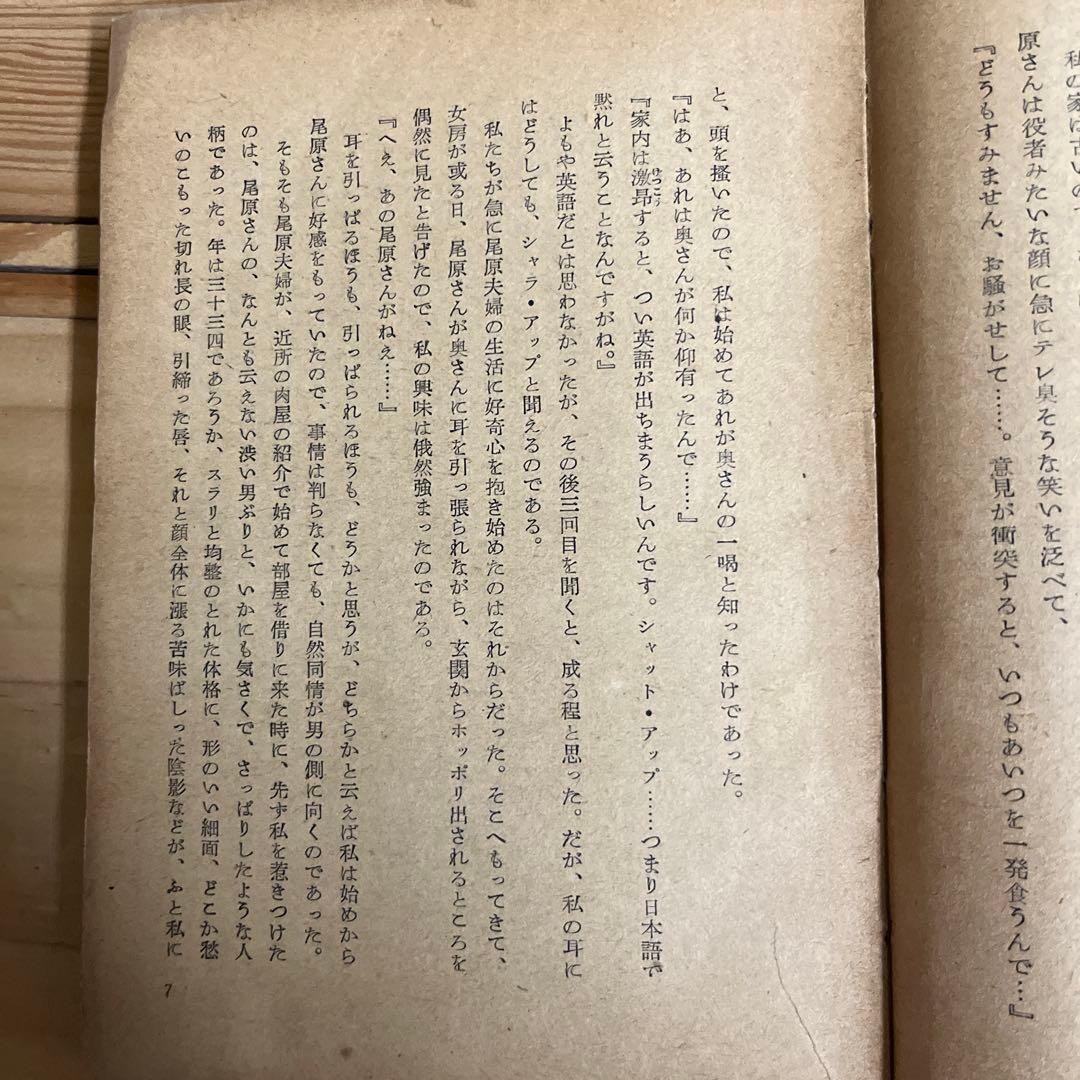 私の家は古いの
原さんは役者みたいな顔に急にテレ臭そうな笑いを泛べて、
『どうもすみません、お騒がせして……。意見が衝突すると、いつもあいつを一発食うんで…』
と、頭を掻いたので、私は始めてあれが奥さんの一喝と知ったわけであった。
『はあ、あれは奥さんが何か仰有ったんで……』
『家内は激昂すると、つい英語が出ちまうらしいんです。シャット・アップ……つまり日本語で
げっこう
黙れと云うことなんですがね。』
よもや英語だとは思わなかったが、その後三回目を聞くと、成る程と思った。だが、私の耳に
はどうしても、シャラ・アップと聞えるのである。
私たちが急に尾原夫婦の生活に好奇心を抱き始めたのはそれからだった。そこへもってきて、
女房が或る日、尾原さんが奥さんに耳を引っ張られながら、玄関からホッポリ出されるところを
偶然に見たと告げたので、私の興味は俄然強まったのである。
『へえ、あの尾原さんがねえ……』
耳を引っぱるほうも、引っぱられるほうも、どうかと思うが、どちらかと云えば私は始めから
尾原さんに好感をもっていたので、事情は判らなくても、自然同情が男の側に向くのであった。
そもそも尾原夫婦が、近所の肉屋の紹介で始めて部屋を借りに来た時に、先ず私を惹きつけた
のは、尾原さんの、なんとも云えない渋い男ぶりと、いかにも気さくで、さっぱりしたような人
柄であった。年は三十三四であろうか、スラリと均整のとれた体格に、形のいい細面、どこか愁
いのこもった切れ長の眼、引締った唇、それと顔全体に漲る苦味ばしった陰影などが、ふと私に
7